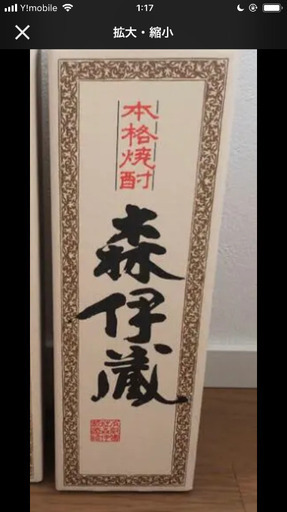 Y!mobile 1:17
拡大・縮小
本格焼酎
森伊蔵